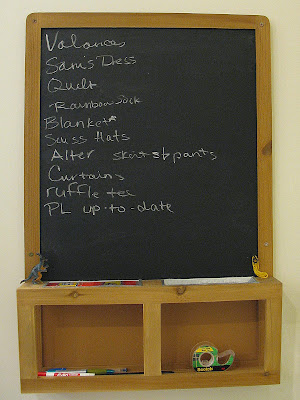 Valances
Sam's Dress
Quilt
Rainbow sock
Blanket*
Seuss Hats
Alter skirts & pants
Curtains
ruffle tee
PL up-to-date
Scotch